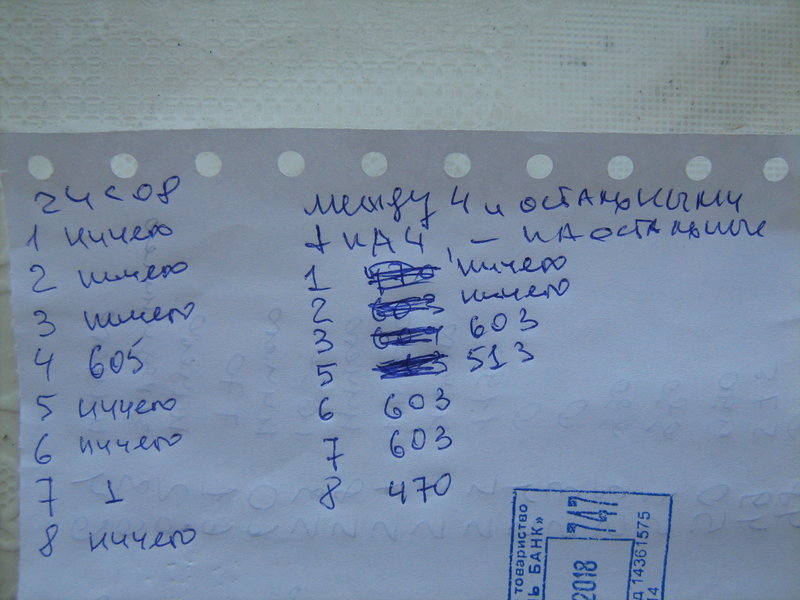 24 СОВ
1 ничего
2 ничего
3 ничего
4 605
5 ничего
6 ничего
7 1
8 ничего
между 4 и остальными
+ на 4, – на остальные
1 ничего
2 ничего
3 603
5 513
6 603
7 603
8 470
товариство
Ь БАНК»
747
2018
д 14361575
14